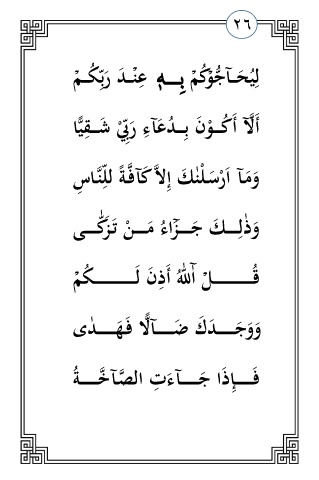 ٢٦
لِيُحَآجُّوْكُمْ بِهٖ عِنْدَ رَبِّكُمْ
أَلَّآ أَكُوْنَ بِدُعَآءِ رَبِّيْ شَقِيًّا
وَمَآ اَرْسَلْنٰكَ اِلاَّ كَآفَّةً لِلنَّاسِ
وَذٰلِكَ جَزٰٓاءُ مَنْ تَزَكّٰى
قُلْ آللّٰهُ أَذِنَ لَكُمْ
وَوَجَدَكَ ضَآلًّا فَهَدٰى
فَإِذَا جَآءَتِ الصَّآخَّةُ